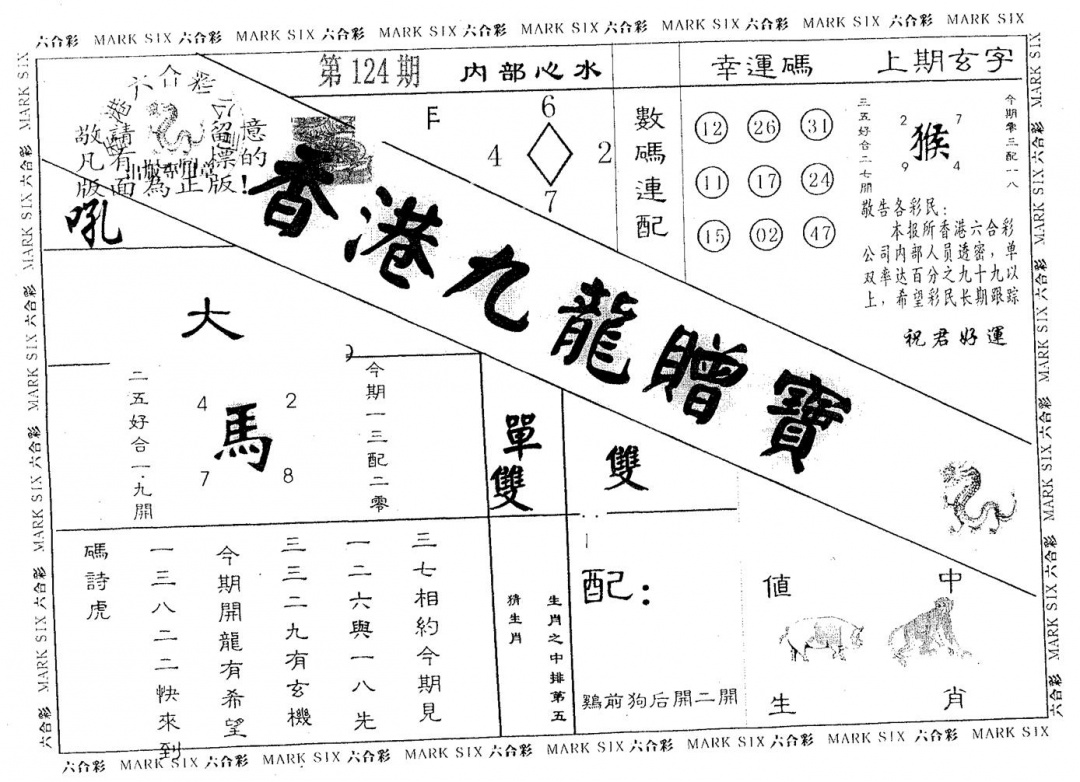 六合彩 MARK SIX 六合彩 MARK SIX 六合彩 MARK SIX 六合彩 MARK SIX 六合彩 MARK SIX 六合彩 MARK SIX 六合彩 MARK SIX
第124期
内部心水
幸運碼
上期玄字
六合彩
敬請留意
凡有標的
版面為正版!
吼
E
6
4
2
7
數碼連配
12 26 31
11 17 24
15 02 47
三五好合二七開
2 7
猴
9 4
今期零三配一八
敬告各彩民:
本报所香港六合彩
公司内部人员透密,单
双率达百分之九十九以
上,希望彩民长期跟踪
祝君好運
香港九龍贈寶
大
二五好合一.九開
4 2
馬
7 8
今期一三配二零
單雙
雙
三七相約今期見
一二六與一八先
三三二九有玄機
今期開龍有希望
一三八二二快來到
碼詩虎
生肖之中排第五
猜生肖
配:
鷄前狗后開二開
值 中
生 肖
六合彩 MARK SIX 六合彩 MARK SIX 六合彩 MARK SIX 六合彩 MARK SIX 六合彩 MARK SIX 六合彩 MARK SIX 六合彩 MARK SIX